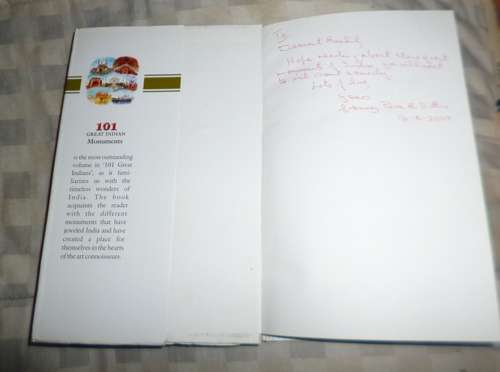 101
GREAT INDIAN
Monuments
is the most outstanding
volume in '101 Great
Indians', as it fami-
liarizes us with the
timeless wonders of
India. The book
acquaints the reader
with the different
monuments that have
jeweled India and have
created a place for
themselves in the hearts
of the art connoisseurs.
To
Dearest
Hope reading about these great
monuments of India
Lots of love